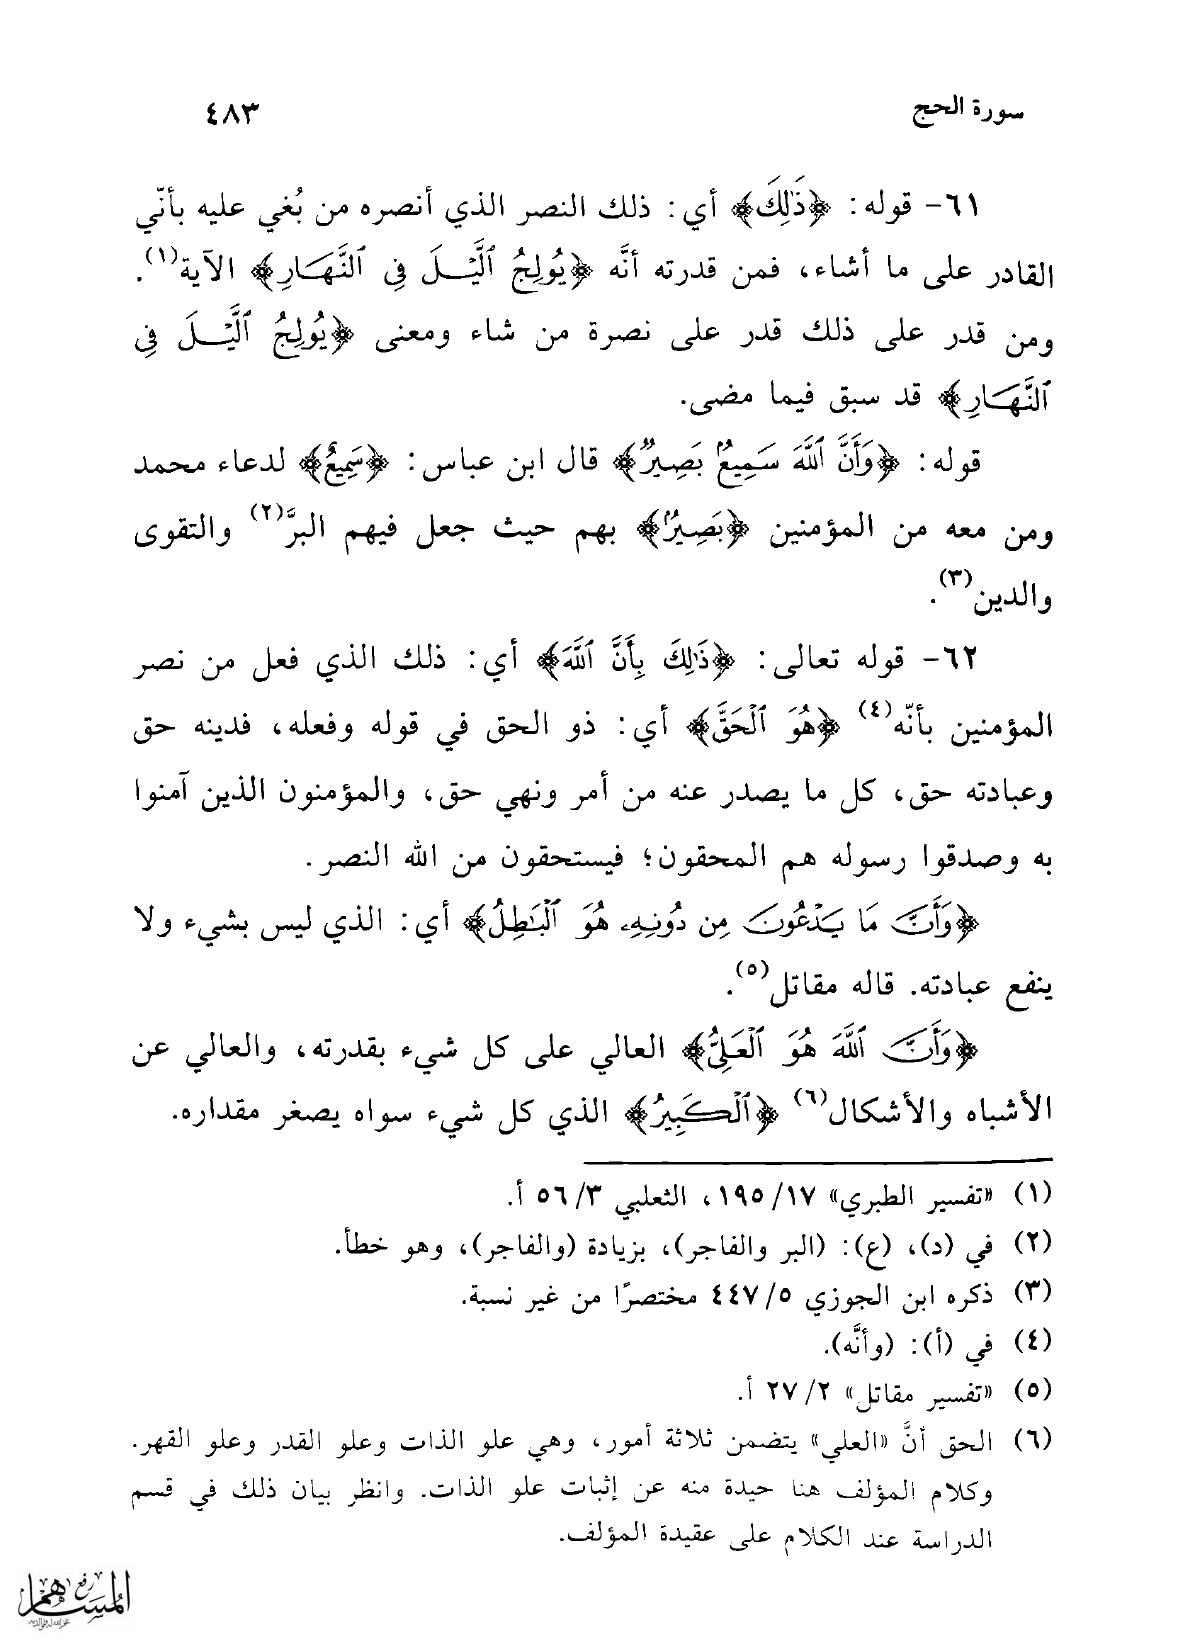 سورة الحج
٤٨٣
٦١- قوله: ﴿ذَٰلِكَ﴾ أي: ذلك النصر الذي أنصره من بُغي عليه بأنّي
القادر على ما أشاء، فمن قدرته أنَّه ﴿يُولِجُ ٱلَّيْلَ فِى ٱلنَّهَارِ﴾ الآية(١).
ومن قدر على ذلك قدر على نصرة من شاء ومعنى ﴿يُولِجُ ٱلَّيْلَ فِى
ٱلنَّهَارِ﴾ قد سبق فيما مضى.
قوله: ﴿وَأَنَّ ٱللَّهَ سَمِيعٌۢ بَصِيرٌ﴾ قال ابن عباس: ﴿سَمِيعٌ﴾ لدعاء محمد
ومن معه من المؤمنين ﴿بَصِيرٌ﴾ بهم حيث جعل فيهم البرَّ(٢) والتقوى
والدين(٣).
٦٢- قوله تعالى: ﴿ذَٰلِكَ بِأَنَّ ٱللَّهَ﴾ أي: ذلك الذي فعل من نصر
المؤمنين بأنّه(٤) ﴿هُوَ ٱلْحَقُّ﴾ أي: ذو الحق في قوله وفعله، فدينه حق
وعبادته حق، كل ما يصدر عنه من أمر ونهي حق، والمؤمنون الذين آمنوا
به وصدقوا رسوله هم المحقون؛ فيستحقون من الله النصر.
﴿وَأَنَّ مَا يَدْعُونَ مِن دُونِهِۦ هُوَ ٱلْبَٰطِلُ﴾ أي: الذي ليس بشيء ولا
ينفع عبادته. قاله مقاتل(٥).
﴿وَأَنَّ ٱللَّهَ هُوَ ٱلْعَلِىُّ﴾ العالي على كل شيء بقدرته، والعالي عن
الأشباه والأشكال(٦) ﴿ٱلْكَبِيرُ﴾ الذي كل شيء سواه يصغر مقداره.
(١) «تفسير الطبري» ١٧/ ١٩٥، الثعلبي ٣/ ٥٦ أ.
(٢) في (د)، (ع): (البر والفاجر)، بزيادة (والفاجر)، وهو خطأ.
(٣) ذكره ابن الجوزي ٥/ ٤٤٧ مختصرًا من غير نسبة.
(٤) في (أ): (وأنَّه).
(٥) «تفسير مقاتل» ٢/ ٢٧ أ.
(٦) الحق أنَّ «العلي» يتضمن ثلاثة أمور، وهي علو الذات وعلو القدر وعلو القهر.
وكلام المؤلف هنا حيدة منه عن إثبات علو الذات. وانظر بيان ذلك في قسم
الدراسة عند الكلام على عقيدة المؤلف.